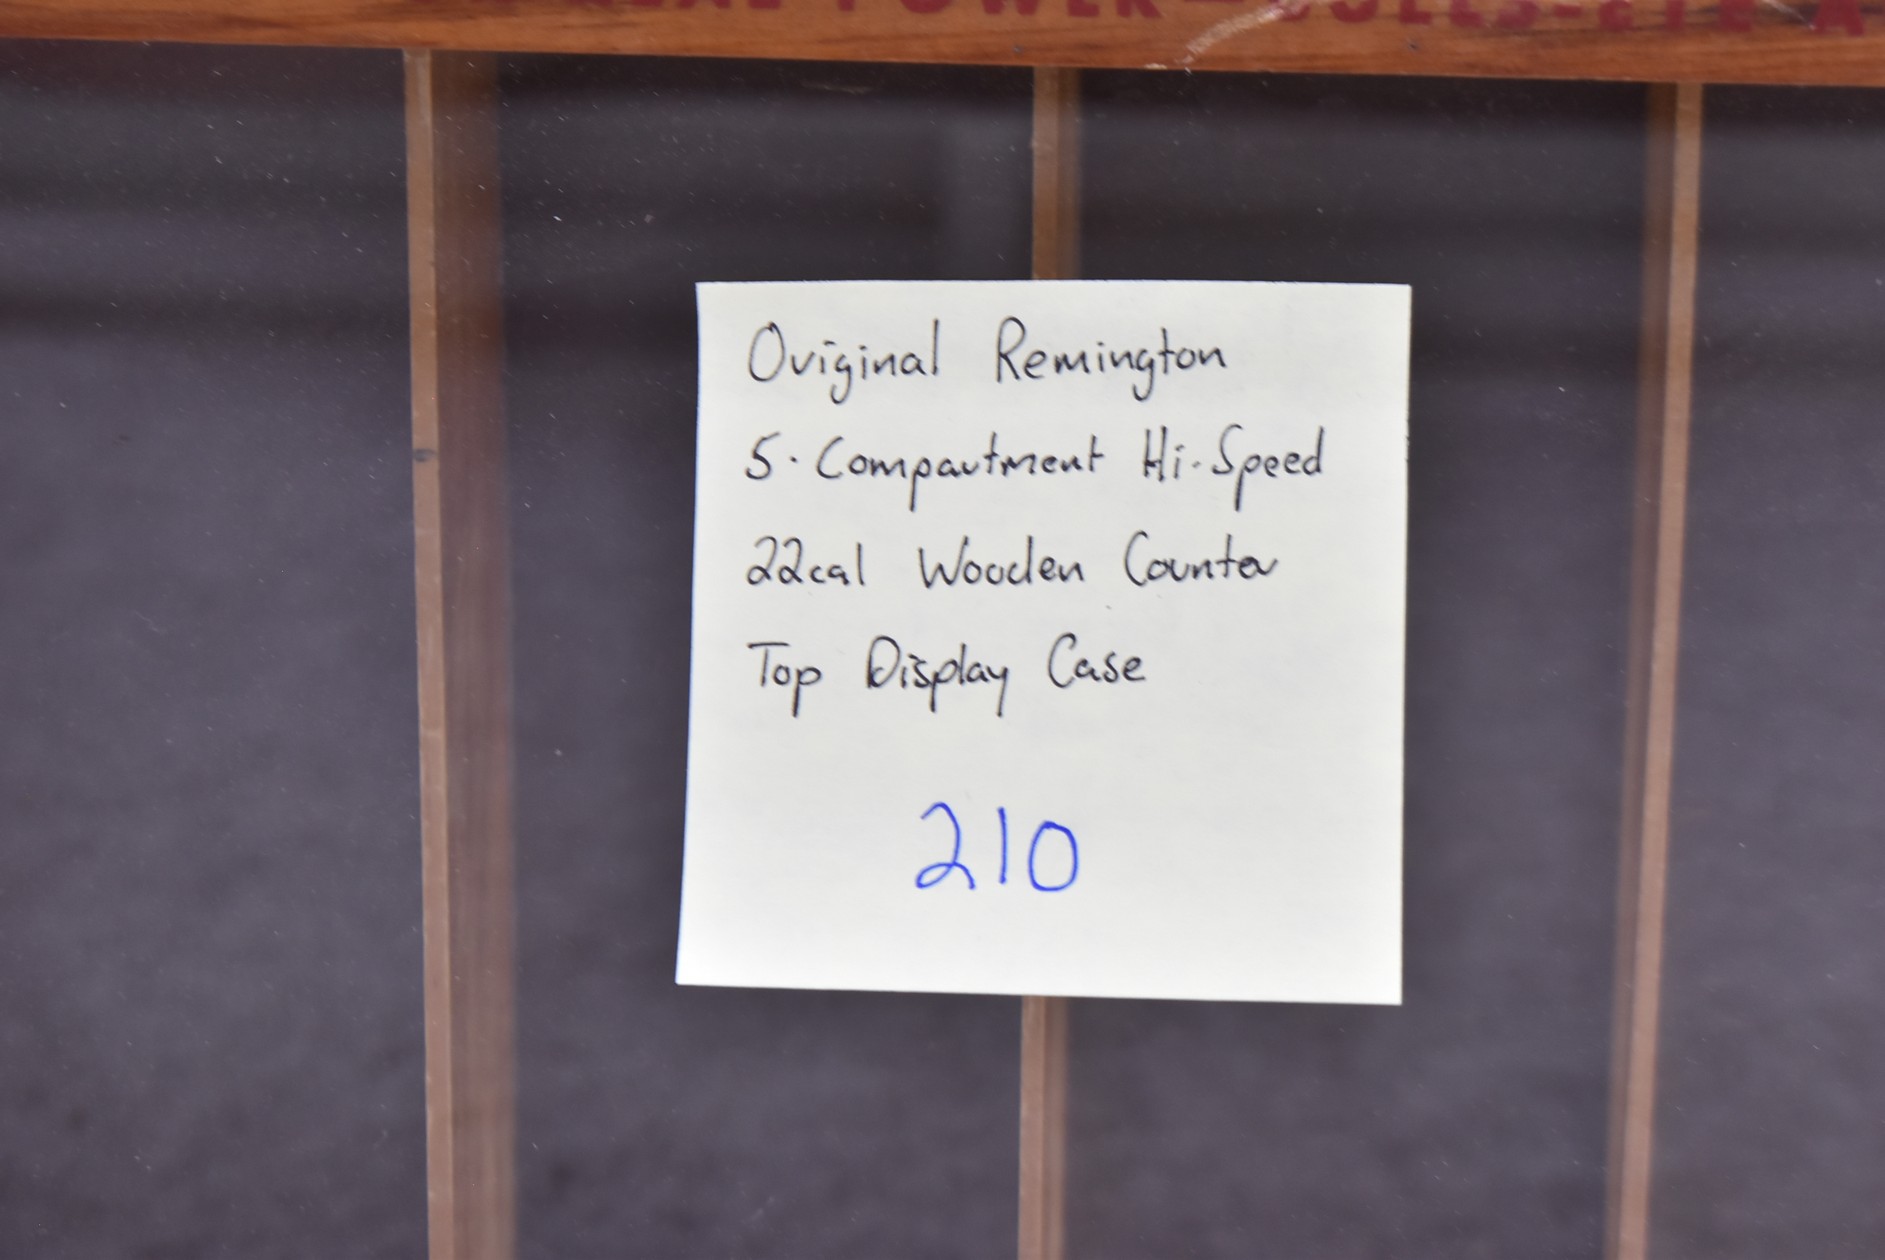 REAL POWER - BULLS-EYE A
Original Remington
5. Compartment Hi-Speed
22cal Wooden Counter
Top Display Case
210